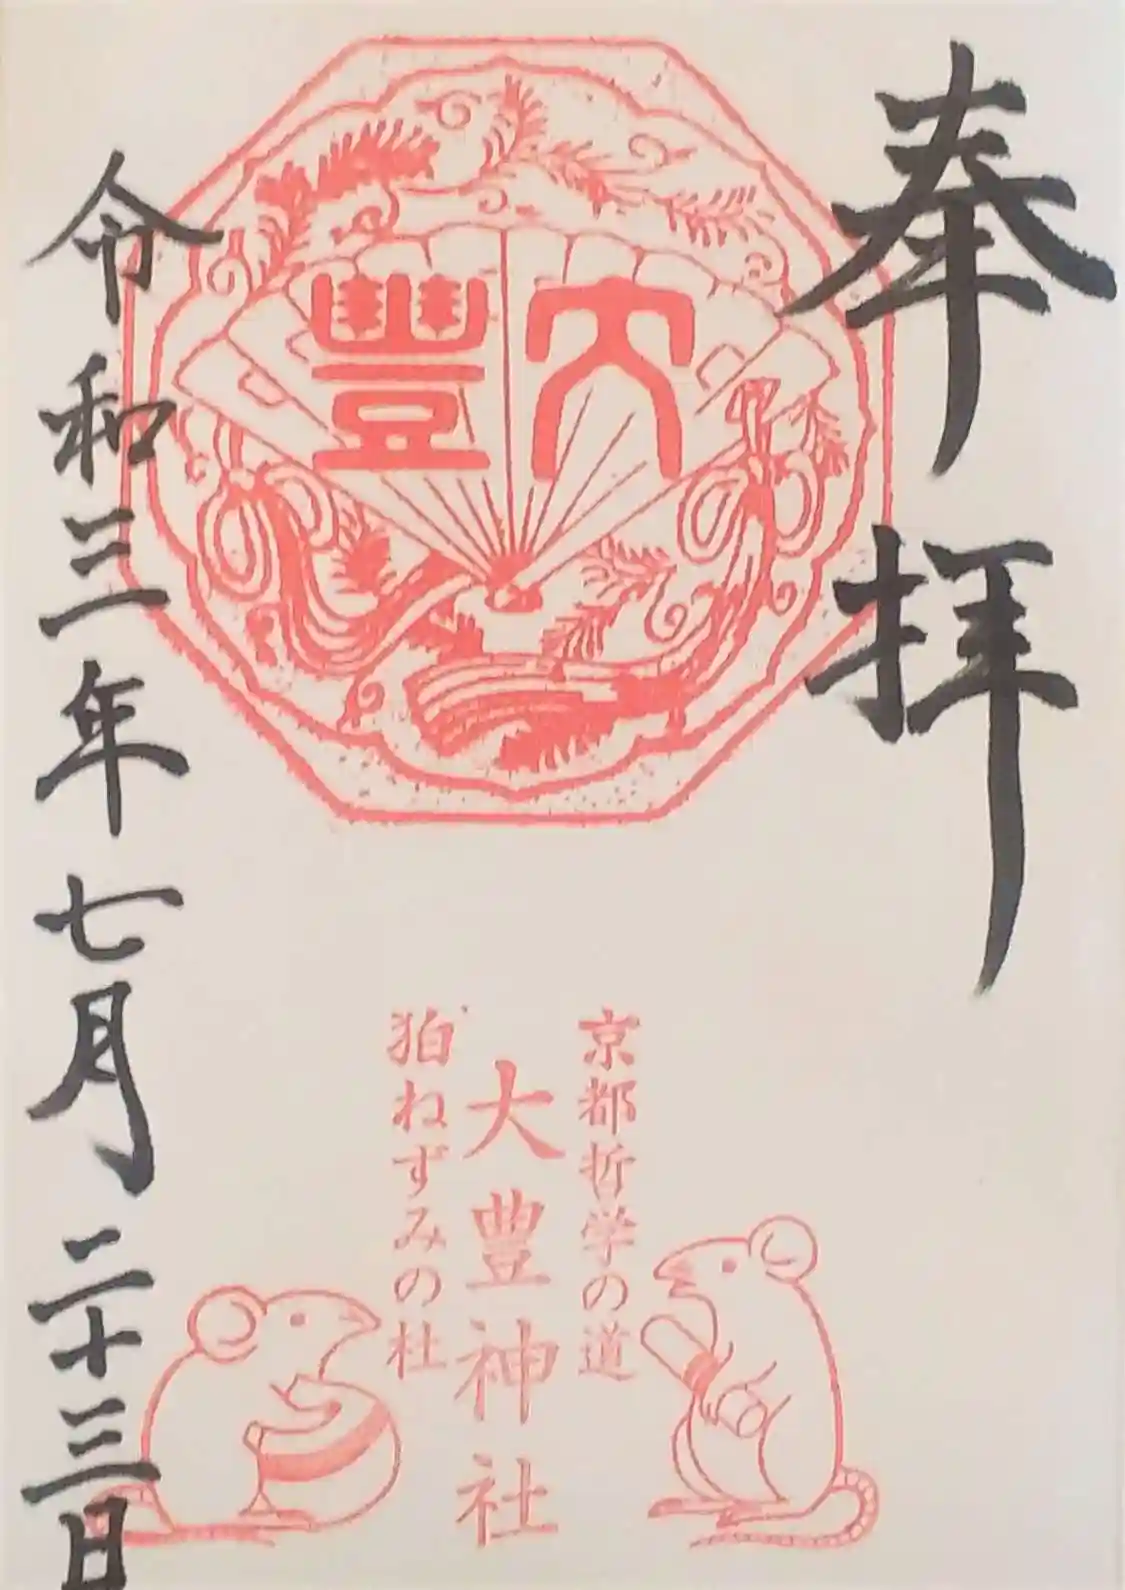 奉拝
大豊
京都哲学の道
大豊神社
狛ねずみの社
令和三年七月二十三日